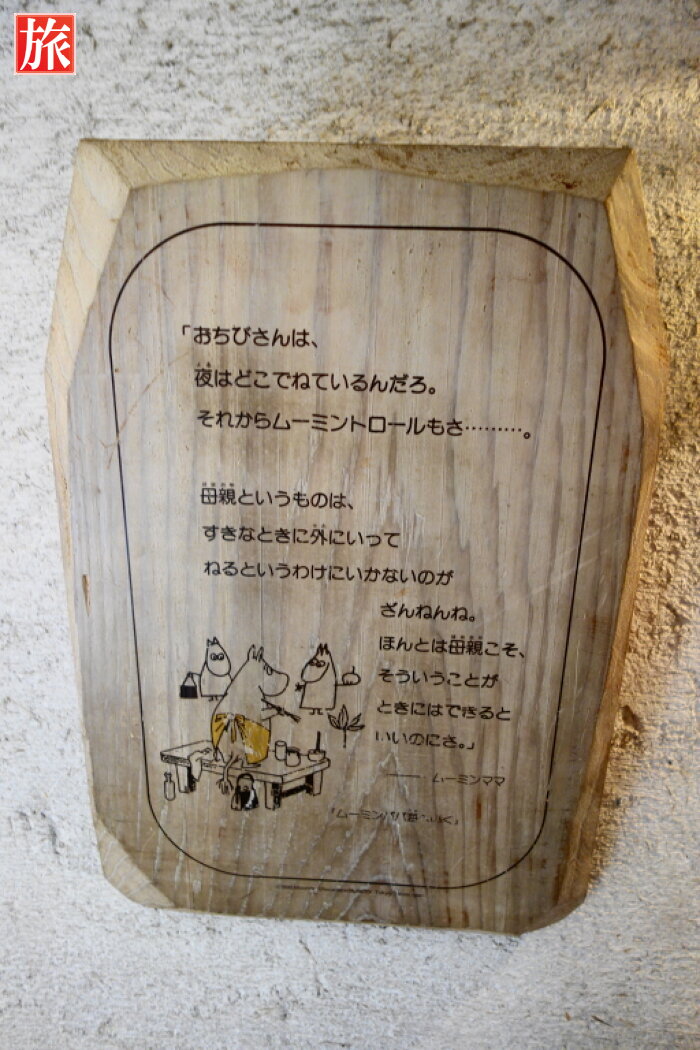 旅
「おちびさんは、
夜はどこでねているんだろ。
それからムーミントロールもさ………。
母親というものは、
すきなときに外にいって
ねるというわけにいかないのが
ざんねんね。
ほんとは母親こそ、
そういうことが
ときにはできると
いいのにさ。」
—— ムーミンママ